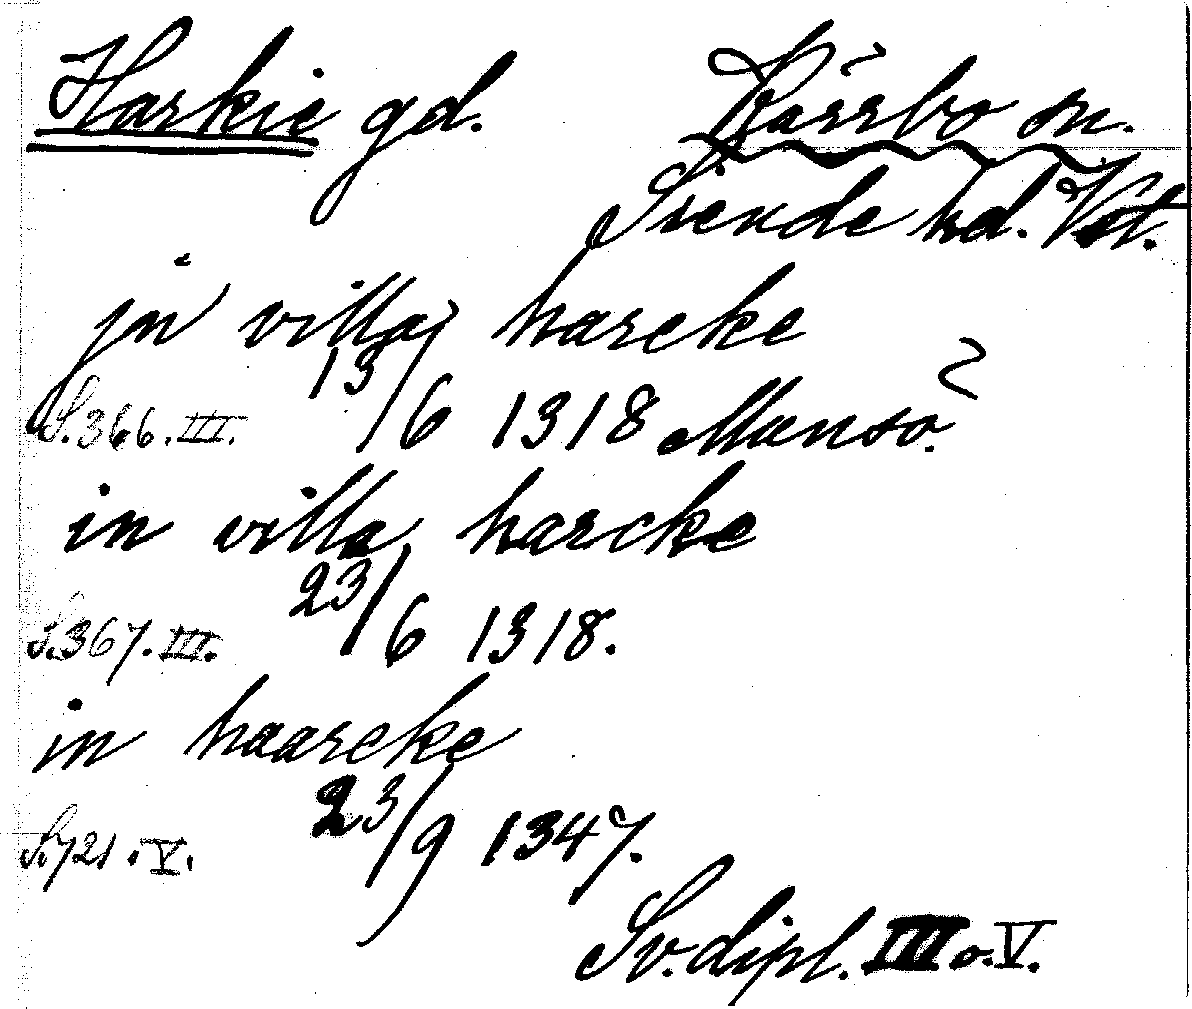 Harkie gd. Kärrbo sn.
Siende hd. Vst.
jn villa harcke
S. 366. III. 13/6 1318 Munsö.
in villa harcke
S. 367. III. 23/6 1318.
in haarcke
S. 721. V. 23/9 1347.
Sv. dipl. III o. V.